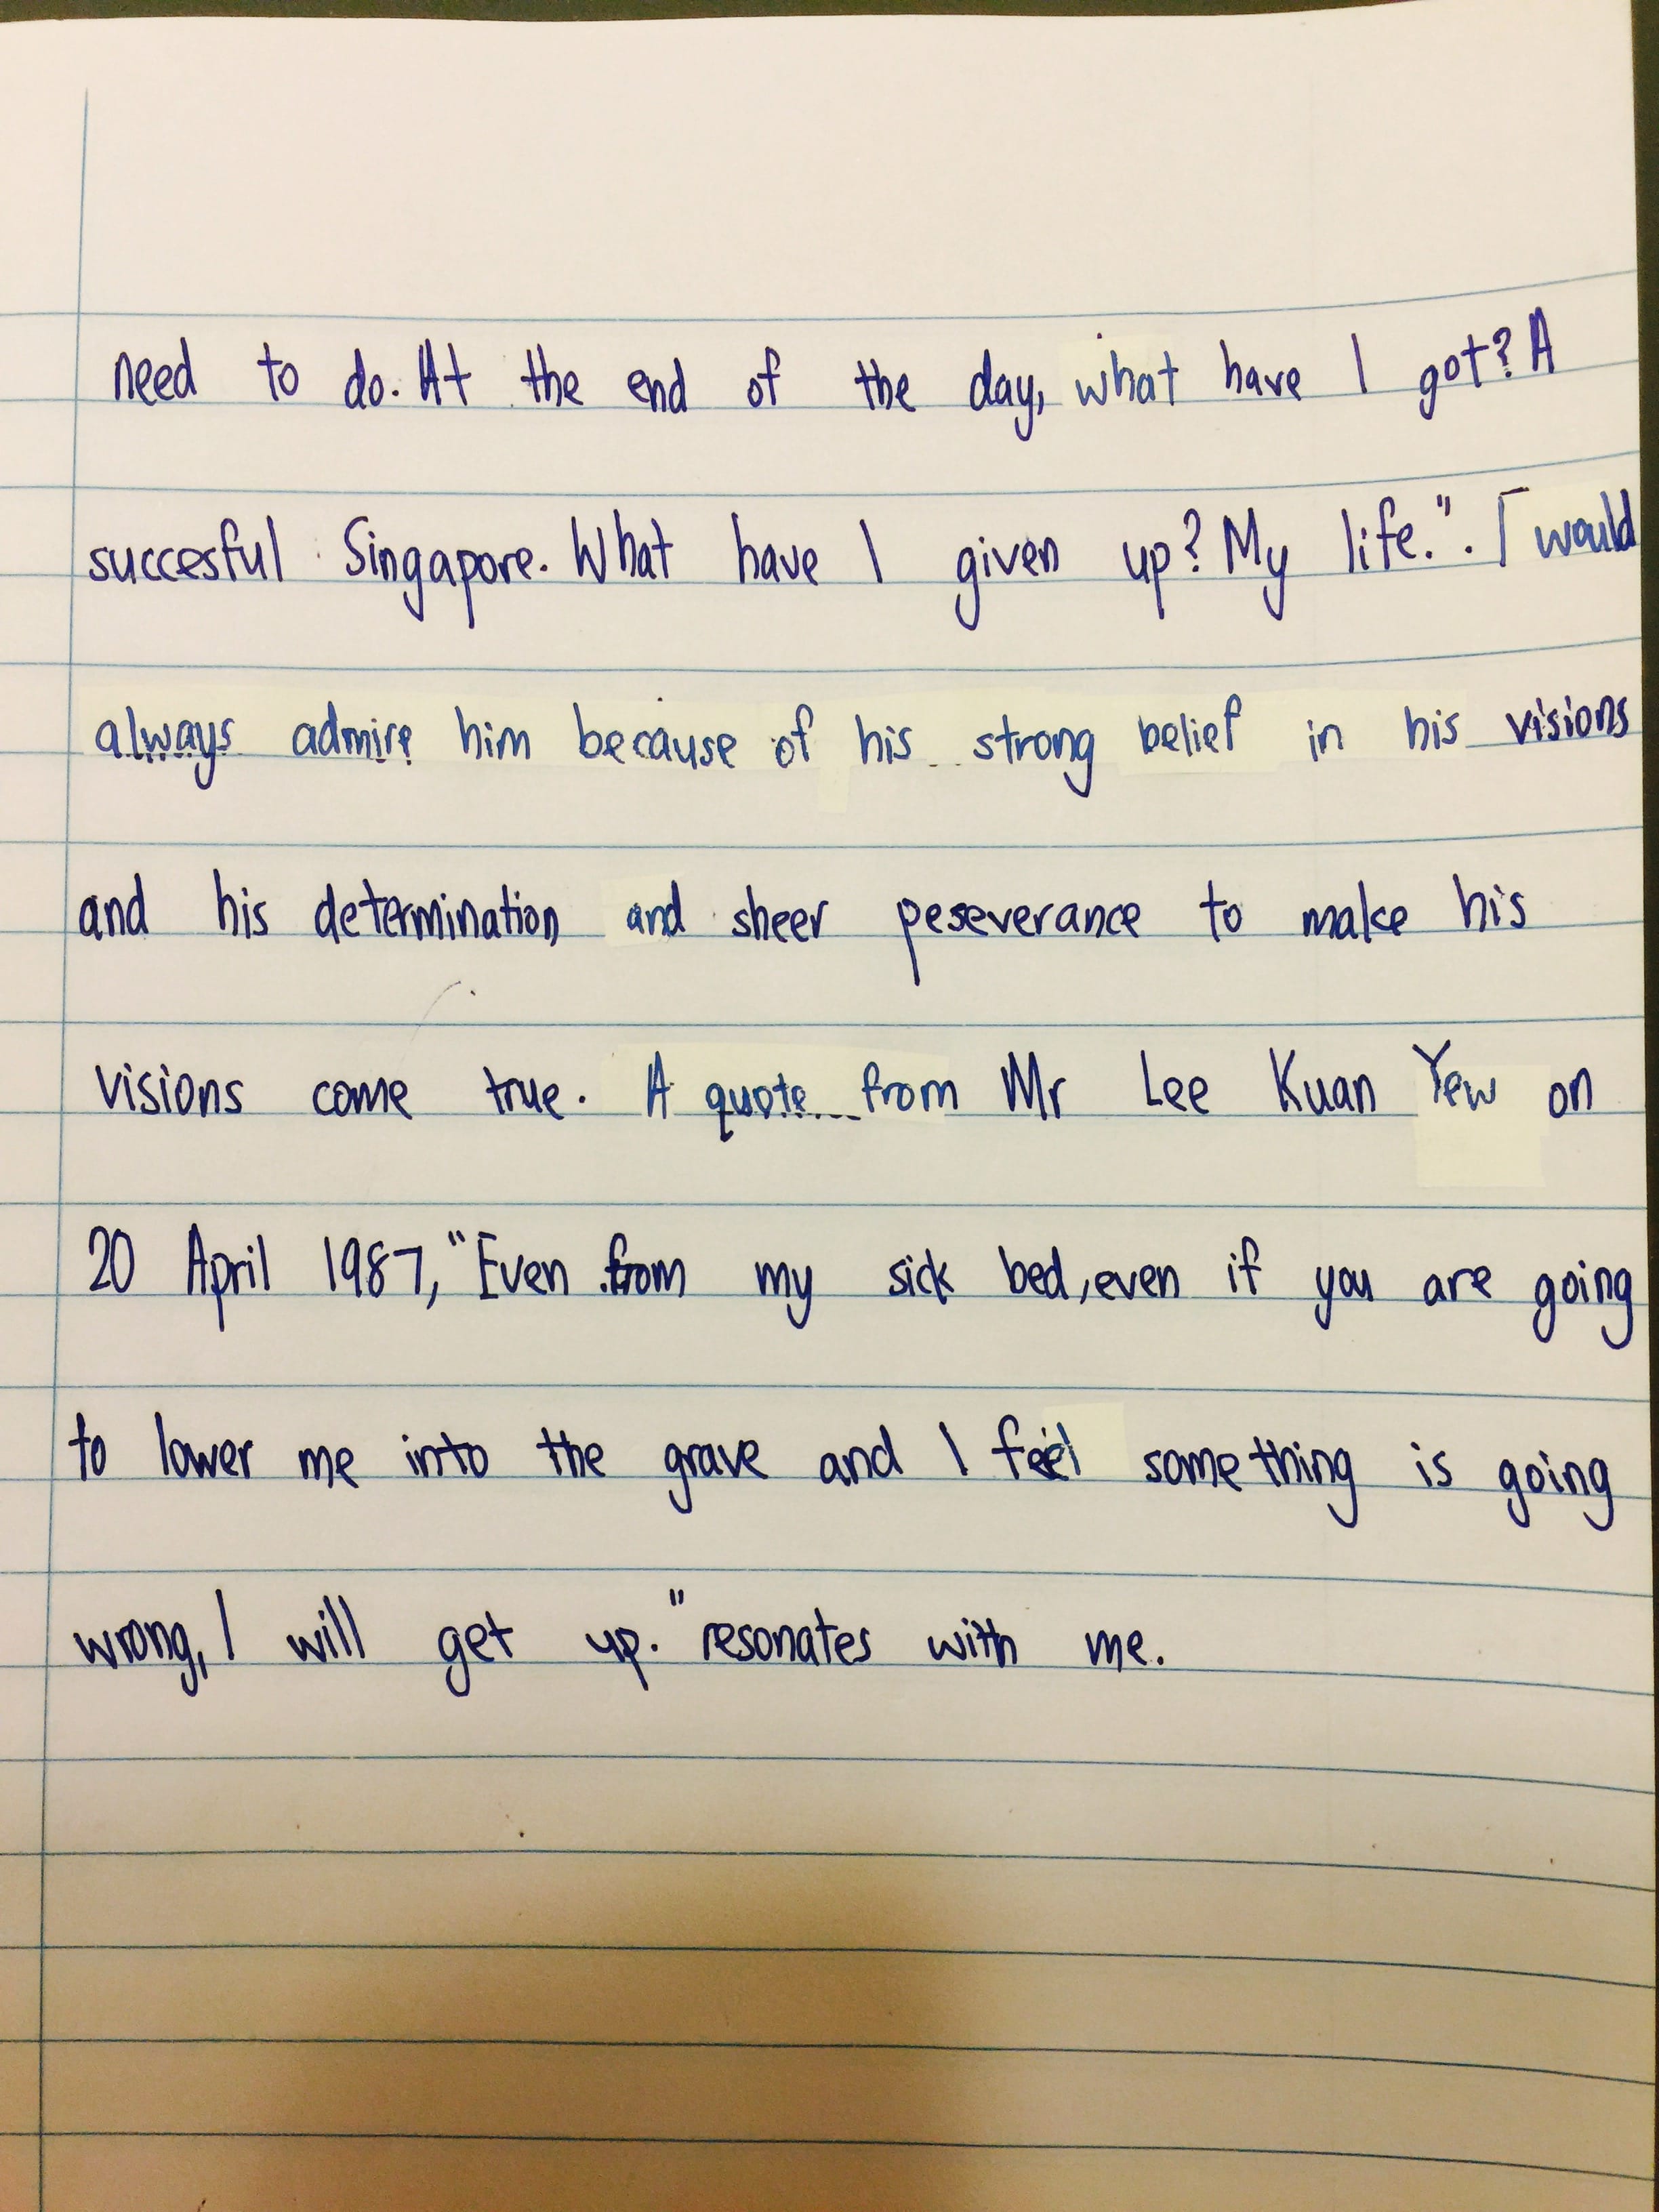 need to do. At the end of the day, what have I got? A
succesful Singapore. What have I given up? My life.". I would
always admire him because of his strong belief in his visions
and his determination and sheer peseverance to make his
visions come true. A quote from Mr Lee Kuan Yew on
20 April 1987, "Even from my sick bed, even if you are going
to lower me into the grave and I feel something is going
wrong, I will get up." resonates with me.